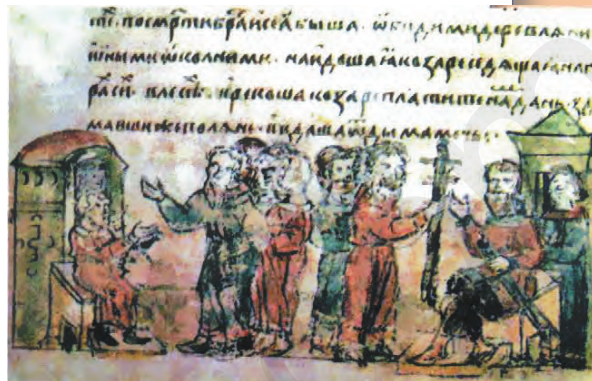 посмртибратїсеѧбыша. ѡбидимидеревлѧни
инымиѡколними. наидошаѧкозареседѧща
влесѣ. ирекошакозареплатитенадань. зд
мавшижеполѧне. ивдашаѿдымамечь.